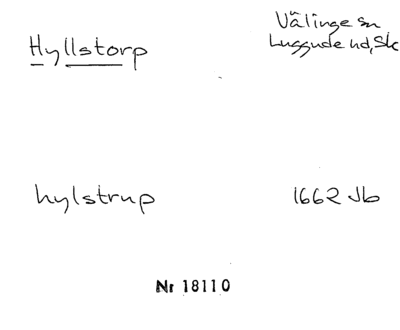 Hyllstorp
Välinge sn
Luggude hd, Sk
hylstrup
1662 Jb
Nr 18110